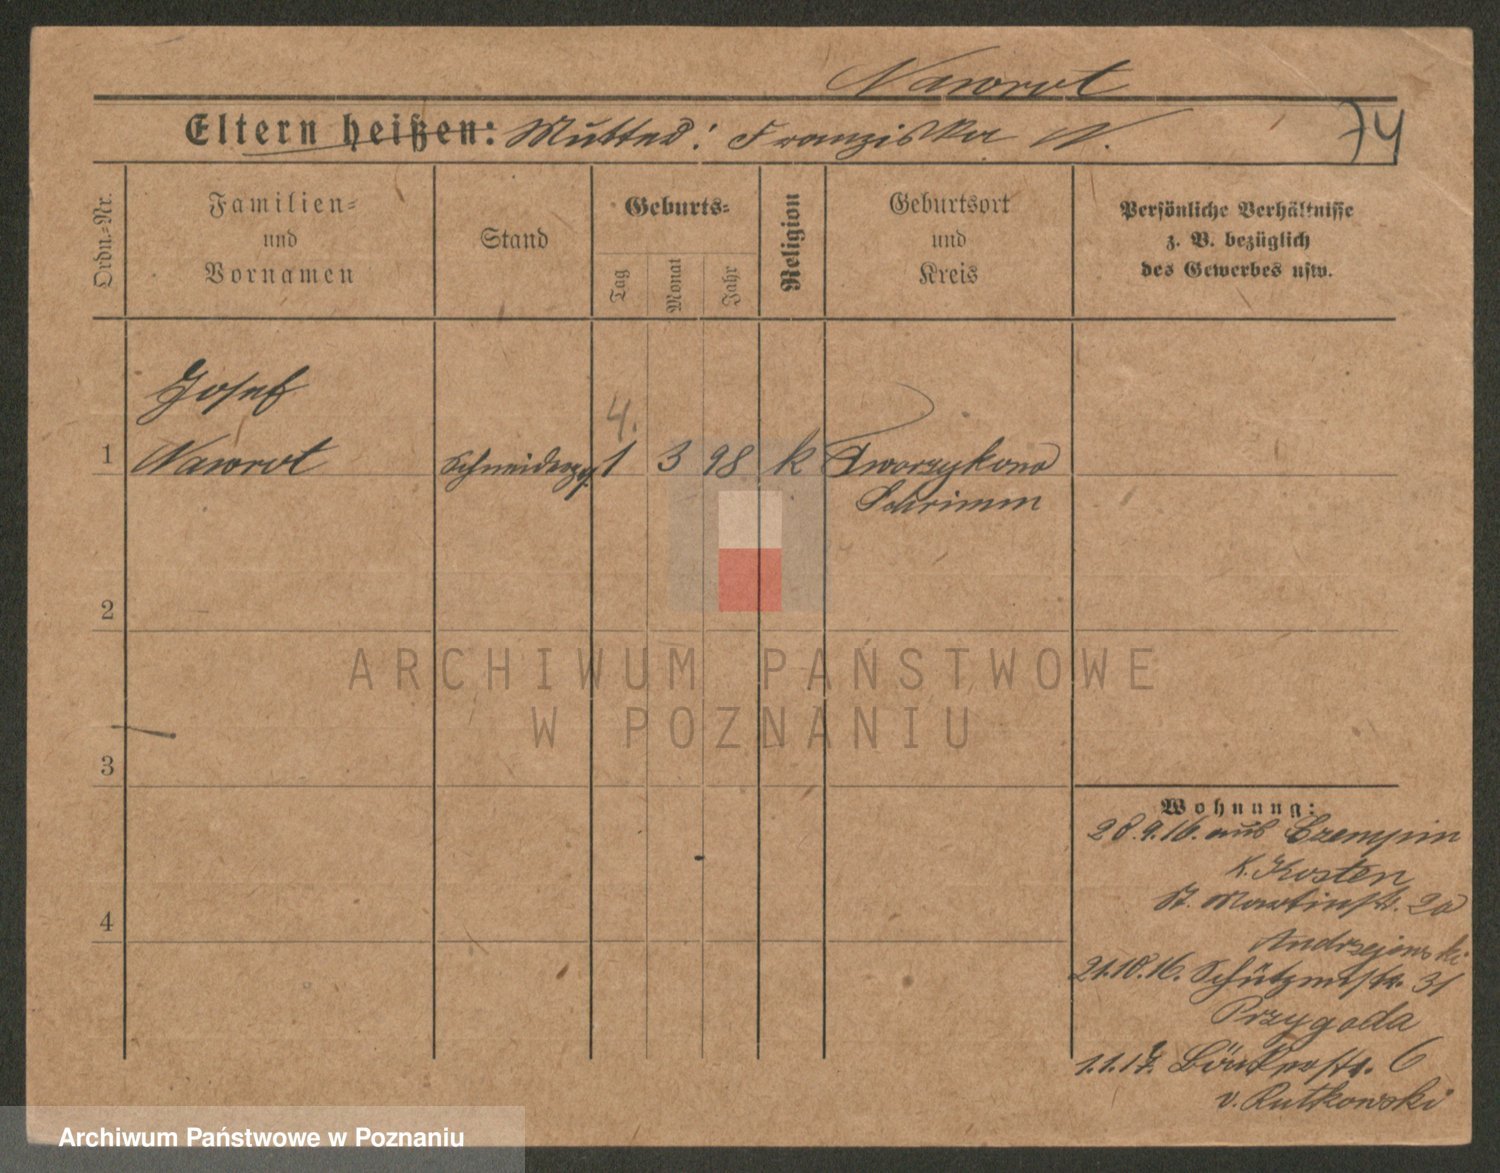 Nawrot
Eltern heißen: Mutter: Franziska N.
74
Ordn.=Nr.
Familien=
und
Vornamen
Stand
Geburts=
Tag
Monat
Jahr
Religion
Geburtsort
und
Kreis
Persönliche Verhältnisse
z. B. bezüglich
des Gewerbes usw.
Josef
4.
1 Nawrot Schneiderg. 1 3 98 k Tworzykowo
Schrimm
2
ARCHIWUM PAŃSTWOWE
W POZNANIU
3
Wohnung:
28.9.16. aus Czempin
K. Kosten
St. Martinstr. 20
4
Andrzejewski
21.10.16. Schützenstr. 31
Przygoda
1.1.17. Bäckerstr. 6
v. Rutkowski
Archiwum Państwowe w Poznaniu